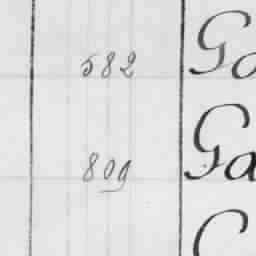 582 Ga
809 Ga
G